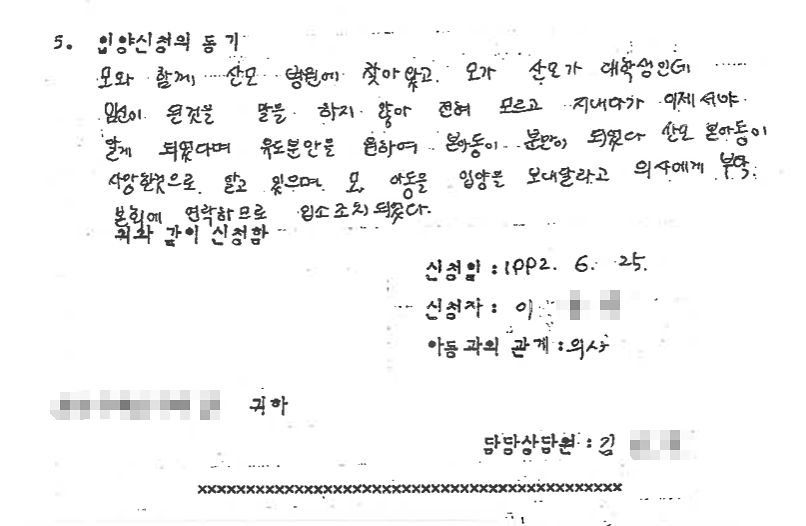 5. 입양신청의 동기
모와 함께 산모 병원에 찾아 왔고. 모가 산모가 대학생인데
임신이 된것을 말을 하지 않아 전혀 모르고 지내다가 이제서야
알게 되었다며 유도분만을 원하여 본아동이 분만이 되었다 산모 본아동이
사망한것으로 알고 있으며. 모, 아동을 입양을 보내달라고 의사에게 부탁.
본회에 연락하므로 입소조치되었다.
위와 같이 신청함
신청일 : 1992. 6. 25.
신청자 : 이
아동과의 관계 : 의사
귀하
담당상담원 : 김
xxxxxxxxxxxxxxxxxxxxxxxxxxxxxxxxxxxxxxxxxxxx